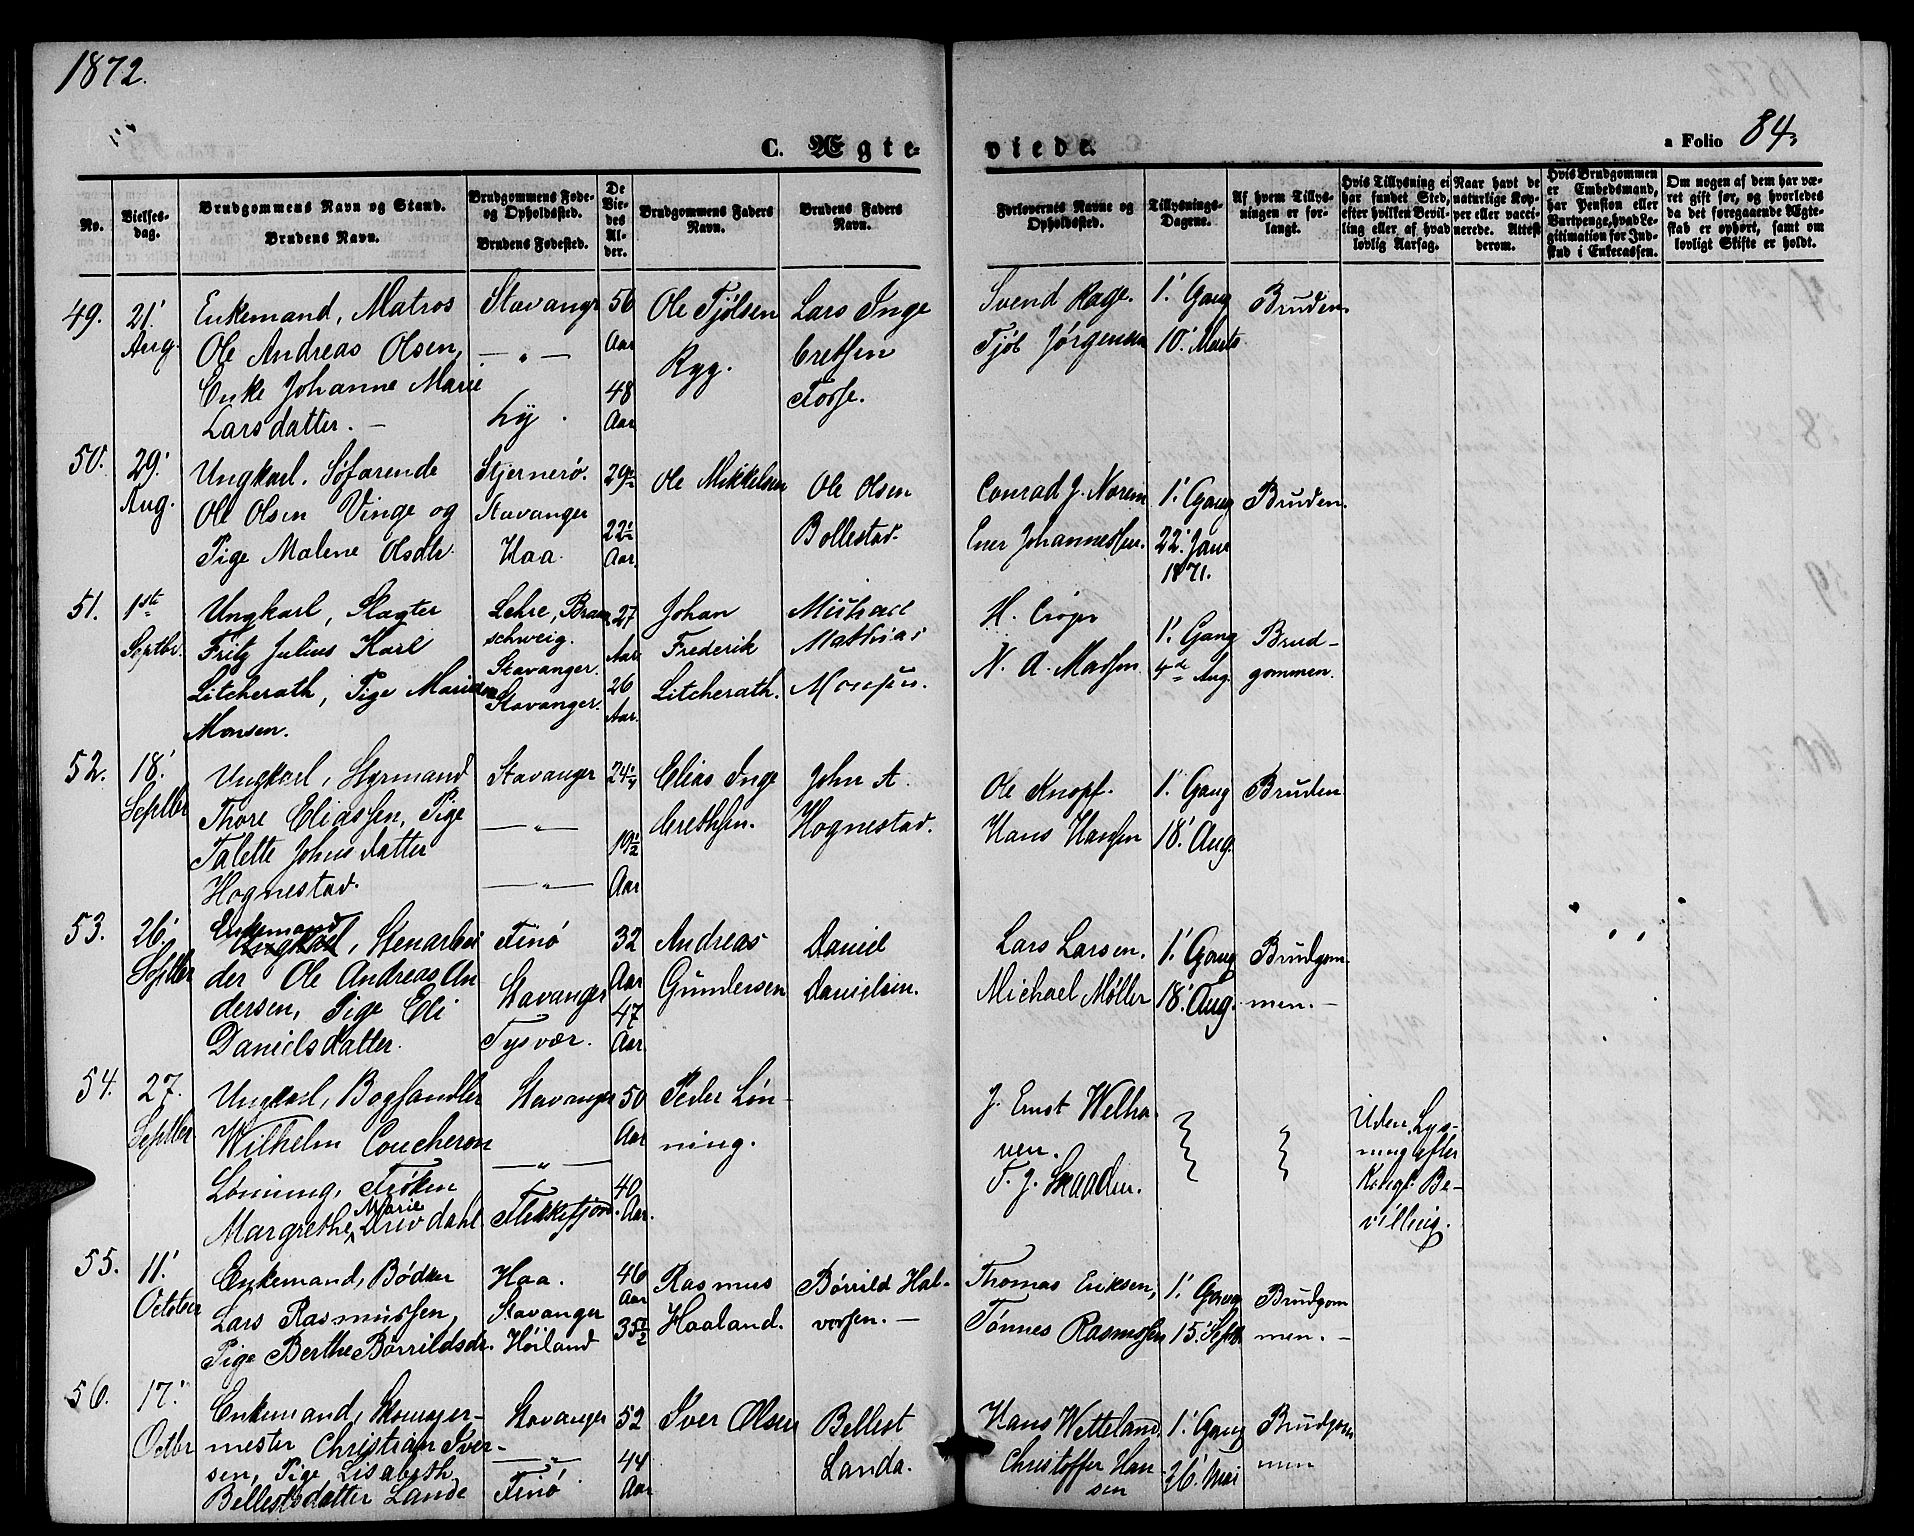 1872.
C. Ægte-
viede.
a Folio 84.
No.
Vielses-
dag.
Brudgommens Navn og Stand.
Brudens Navn.
Brudgommens Føde-
og Opholdssted.
Brudens Fødested.
De
Vie-
des
Al-
der.
Brudgommens Faders
Navn.
Brudens Faders
Navn.
Forlovernes Navne og
Opholdssted.
Tillysnings-
Dagene.
Af hvem Tillys-
ningen er for-
langt.
Hvis Tillysning ei
har fundet Sted,
efter hvilken Bevil-
ling eller af hvad
lovlig Aarsag.
Naar havt de
naturlige Kop-
per eller vacci-
nerede. Attest
derom.
Hvis Brudgommen
er Embedsmand,
har Pension eller
Vartpenge, hvad Le-
gitimation for Ind-
skud i Enkecassen.
Om nogen af dem har væ-
ret gift før, og hvorledes
da det foregaaende Ægte-
skab er ophørt, samt om
lovligt Skifte er holdt.
49.
21'
Aug.
Enkemand, Matros
Ole Andreas Olsen,
Enke Johanne Marie
Larsdatter. —
Stavanger
— „ —
Ly.
56
Aar
48
Aar
Ole Tjølsen
Ryg.
Lars Inge
bretsen
Torse.
Svend Rage.
Tjøl Jørgensen
1' Gang
10' Marts
Bruden.
50.
29'
Aug.
Ungkarl, Søfarende
Ole Olsen Vinge og
Pige Malene Olsdtr.
Stjernerø.
Stavanger
Haa.
29
22½
Aar.
Ole Mikkelsen
Ole Olsen
Bollestad.
Conrad J. Norem
Ener Johannessen.
1' Gang
22' Janr
1871.
Bruden.
51.
1ste
Septbr.
Ungkarl, Slagter
Fritz Julius Karl
Litcherath, Pige Mariane
Monsen.
Lehre, Braun
schweig.
Stavanger.
Stavanger.
27
Aar.
26
Aar.
Johan
Frederik
Litcherath.
Michael
Mathias
Monsen.
H.
N. A. Madsen.
1' Gang
4de Aug.
Brud-
gommen.
52.
18'
Septbr
Ungkarl, Styrmand
Thore Eliassen, Pige
Talette Johnsdatter
Hognestad.
Stavanger
— „ —
— „ —
24¼
19½
Aar
Elias Inge
brethsen.
John A.
Hognestad.
Ole Knopf.
Hans Hansen
1' Gang
18' Aug.
Bruden
53.
26'
Septbr
Enkemand
Ungkarl, Stenarbei
der Ole Andreas An
dersen, Pige Eli
Danielsdatter.
Finø
Stavanger
Tysvær.
32
Aar
47
Aar
Andreas
Gundersen
Daniel
Danielsen.
Lars Larsen.
Michael Møller
1' Gang
18' Aug.
Brudgom
men. —
54.
27.
Septbr.
Ungkarl, Boghandler
Wilhelm Coucheron
Lønning, Frøken
Marie
Margrethe Drivdahl
Stavanger
— „ —
Flekkefjord.
50
Aar
40
Aar.
Peder Løn-
ning.
J. Ernst Welha-
ven.
T. J. Skaaden.
Uden Lys-
ning efter
Kongl. Be-
villing.
55.
11'
October
Enkemand, Bødker
Lars Rasmussen,
Pige Berthe Børrildsdr.
Haa.
Stavanger
Høiland
46
Aar
35½
Rasmus
Haaland.
Børrild Hal-
vorsen. —
Thomas Eriksen,
Tønnes Rasmussen
1' Gang
15' Septbr.
Brudgom
men. —
56.
17'
Octbr
Enkemand, Skomager-
mester Christian Iver-
sen, Pige Lisabeth
Bellestsdatter Lande
Stavanger
— „ —
Finø
52
44
Aar
Iver Olsen
Bellest
Landa.
Hans Wetteland
Christoffer Han-
sen
1' Gang
26' Mai
Brudgom
men